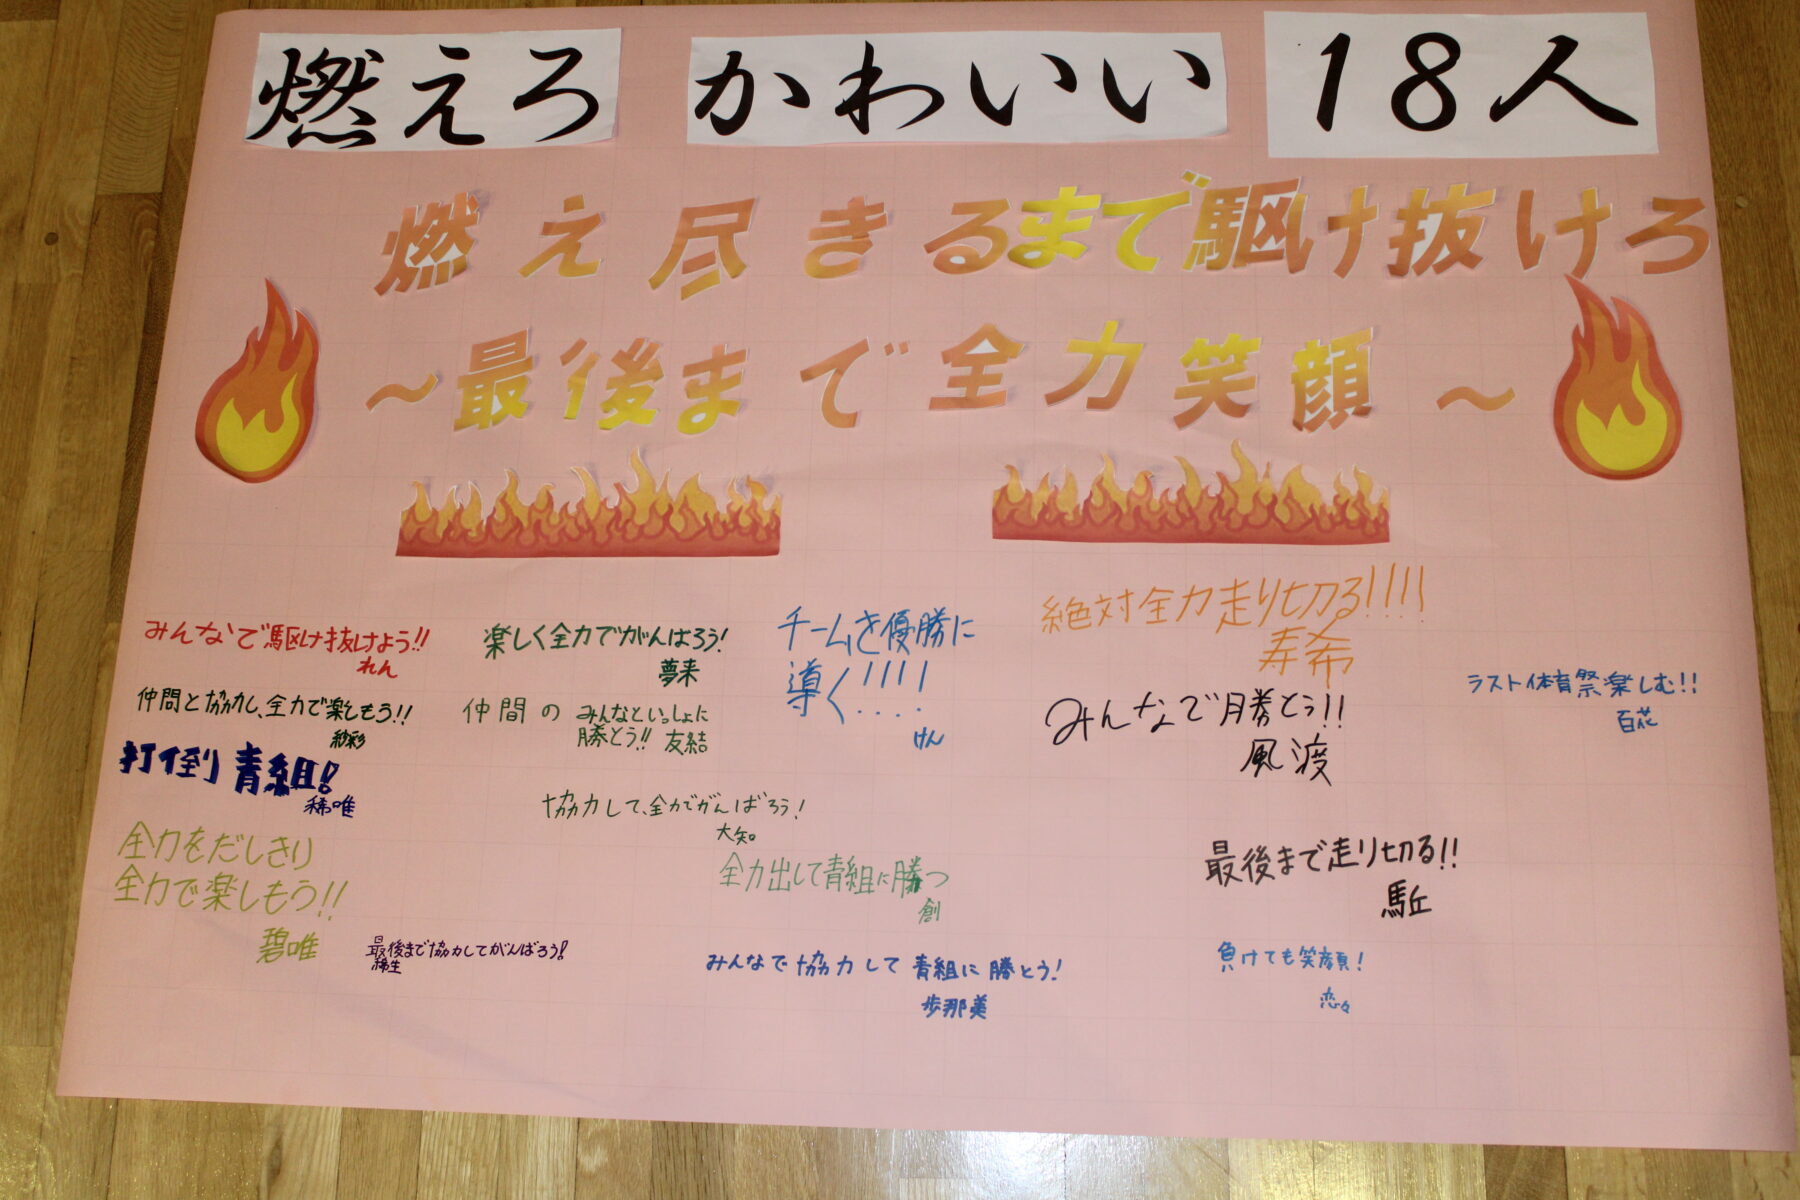 燃えろ かわいい 18人
燃え尽きるまで駆け抜けろ
～最後まで全力笑顔～
みんなで駆け抜けよう!!
れん
楽しく全力でがんばろう!
夢来
チームを優勝に
導く!!!!
けん
絶対全力走り切る!!!!
寿希
ラスト体育祭楽しむ!!
百花
仲間と協力し、全力で楽しもう!!
紗彩
仲間の みんなといっしょに
勝とう!! 友結
みんなで勝とう!!
風渡
打倒 青組!
稀唯
協力して、全力でがんばろう!
大知
全力をだしきり
全力で楽しもう!!
碧唯
全力出して青組に勝つ
創
最後まで走り切る!!
最後まで協力してがんばろう!
稀生
みんなで協力して青組に勝とう!
歩那美
負けても笑顔!
恋々